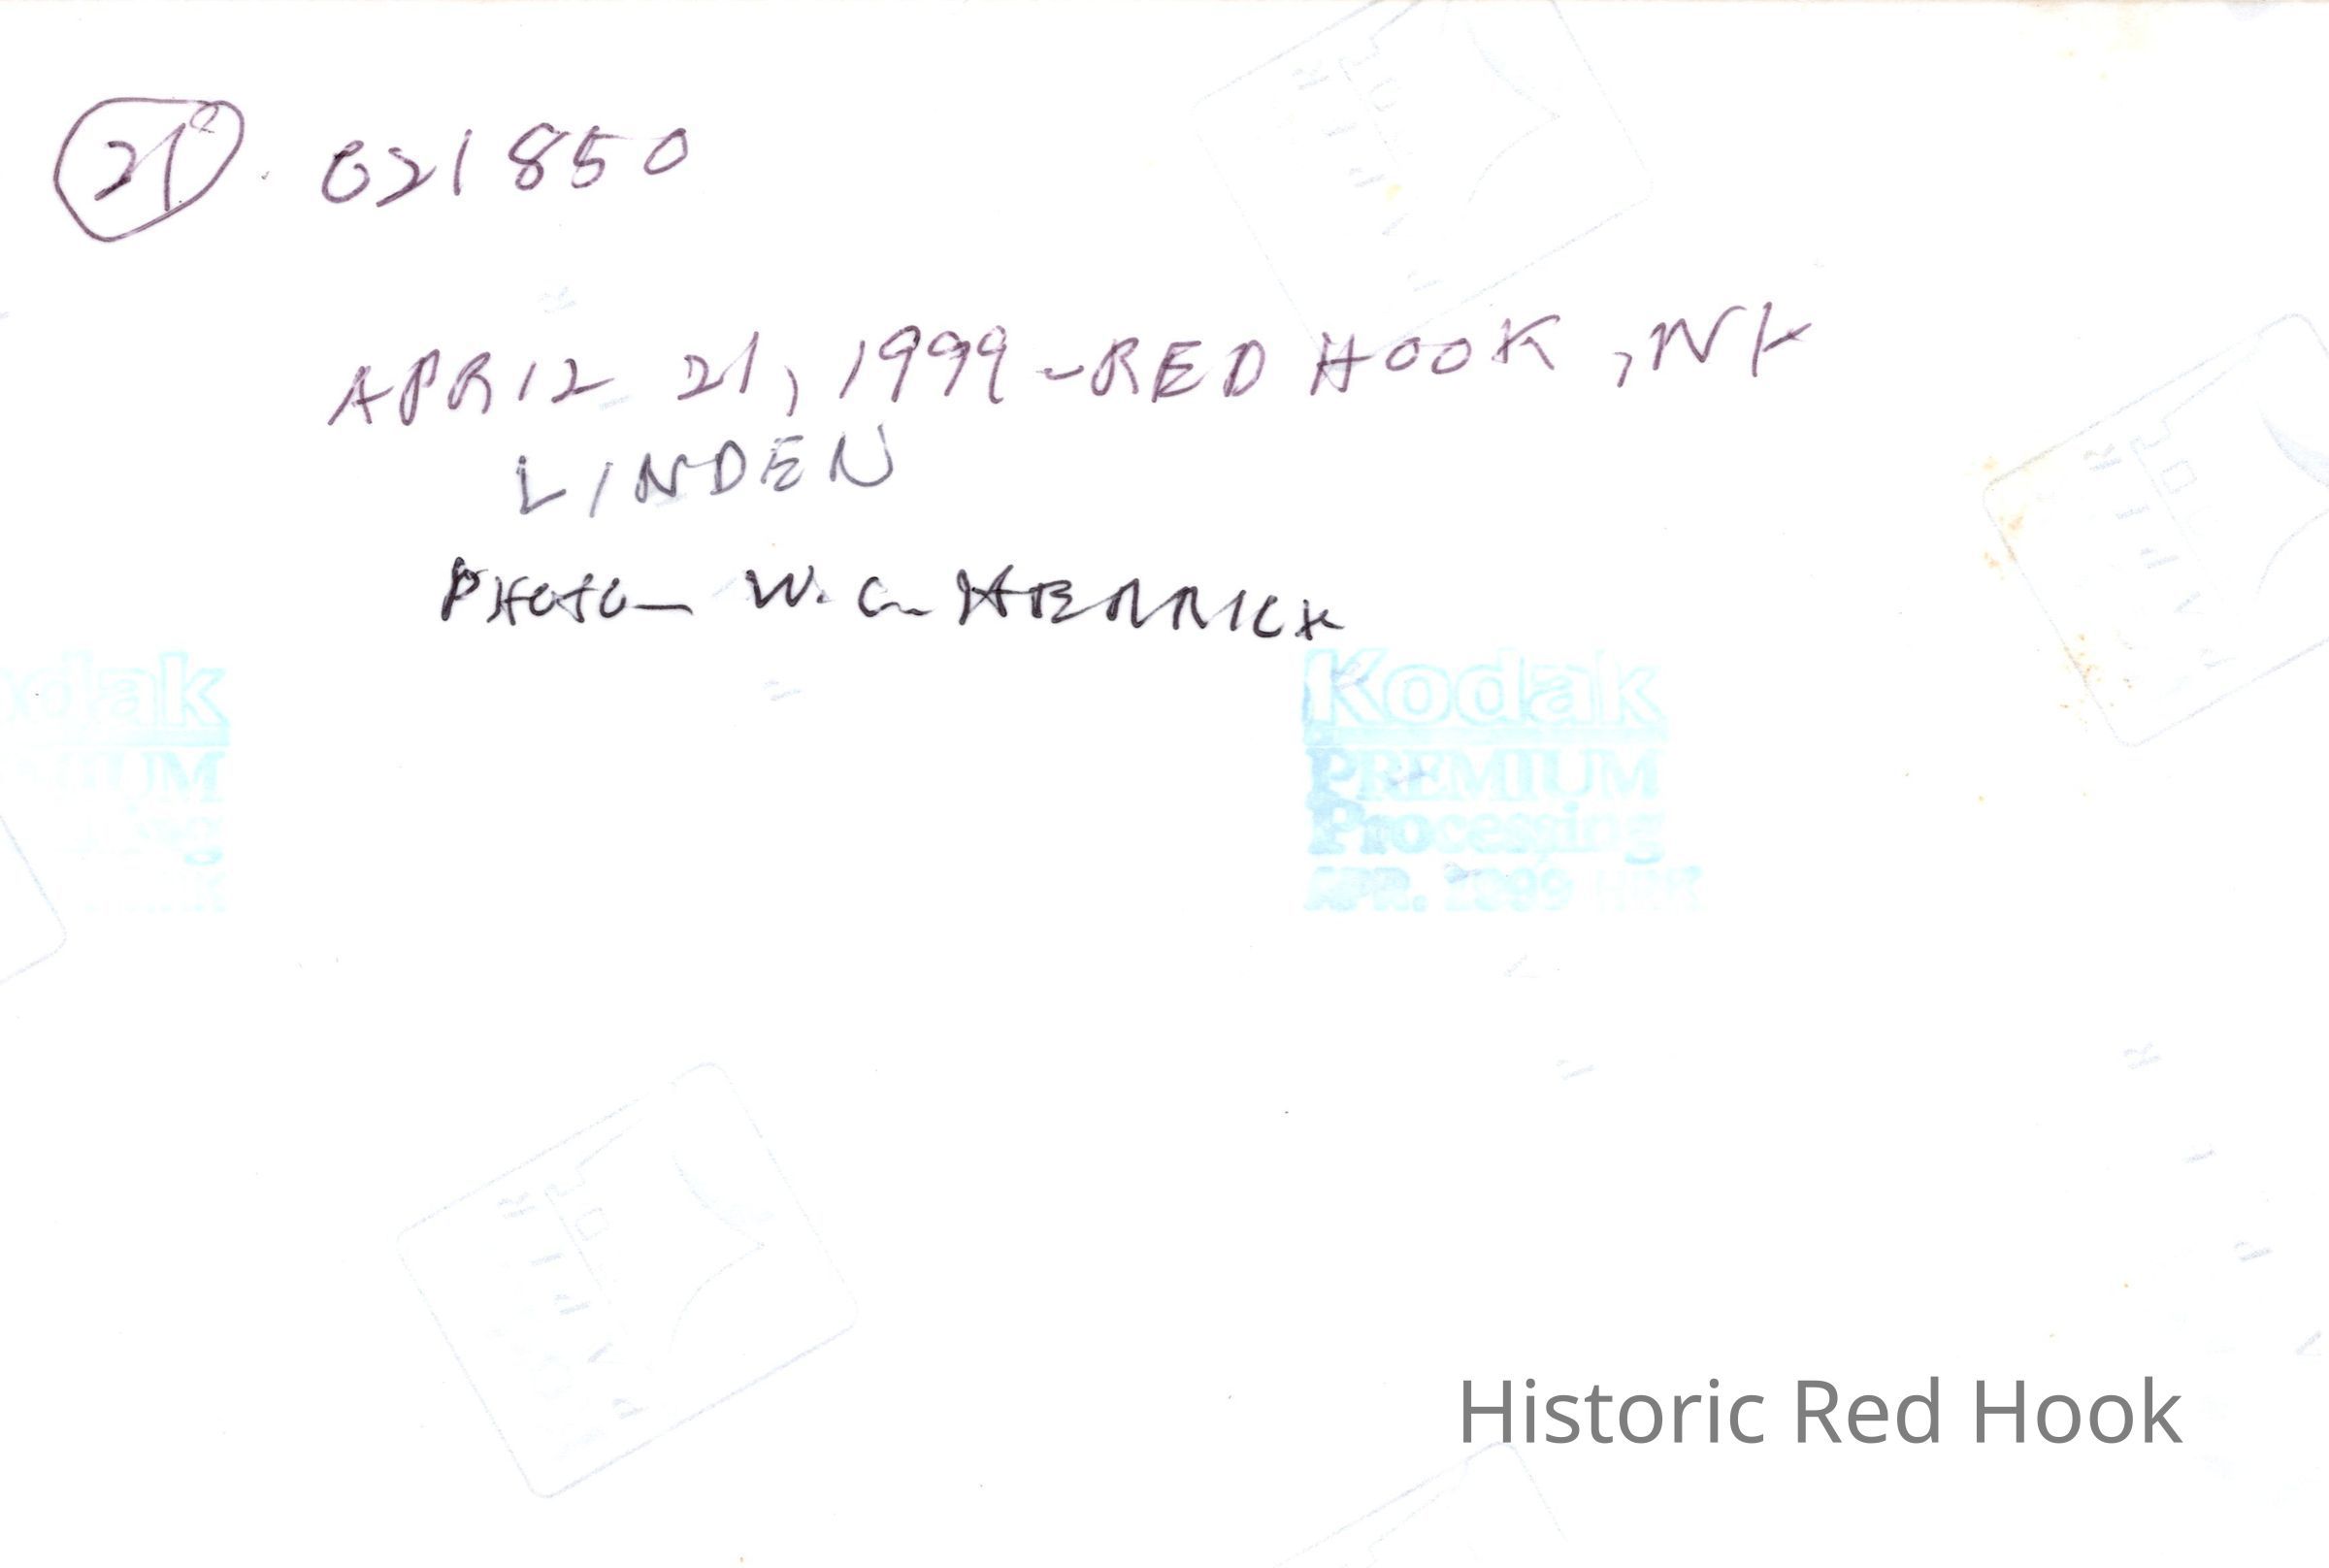 21 021850
APRIL 21, 1999 - RED HOOK, NY
LINDEN
PHOTO - W. C. HERRICK
Kodak
PREMIUM
Processing
APR. 1999
dak
Historic Red Hook